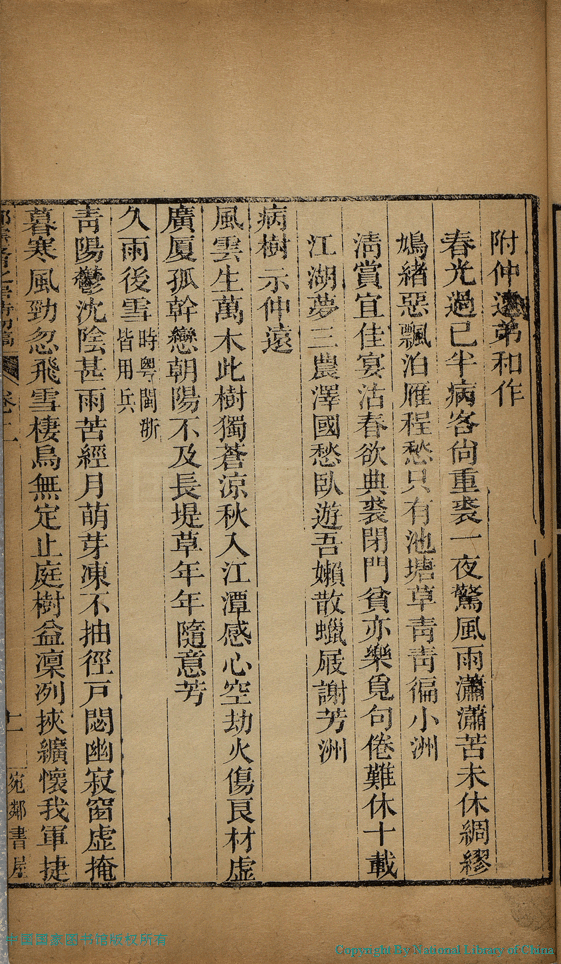 附仲遠弟和作
春光過已半病客尙重裘一夜驚風雨瀟瀟苦未休綢繆
鳩緒惡飄泊雁程愁只有池塘草靑靑徧小洲
淸賞宜佳宴沽春欲典裘閉門貧亦樂覓句倦難休十載
江湖夢三農澤國愁臥遊吾嬾散蠟屐謝芳洲
病樹示仲遠
風雲生萬木此樹獨蒼涼秋入江潭感心空劫火傷良材虛
廣厦孤幹戀朝陽不及長堤草年年隨意芳
久雨後雪 時粵閩浙皆用兵
靑陽鬱沈陰甚雨苦經月萌芽凍不抽徑戸悶幽寂窗虛掩
暮寒風勁忽飛雪棲鳥無定止庭樹益凜冽挾纊懷我軍捷
卷二
宛鄰書屋
中國國家图书馆版权所有
Copyright By National Library of China